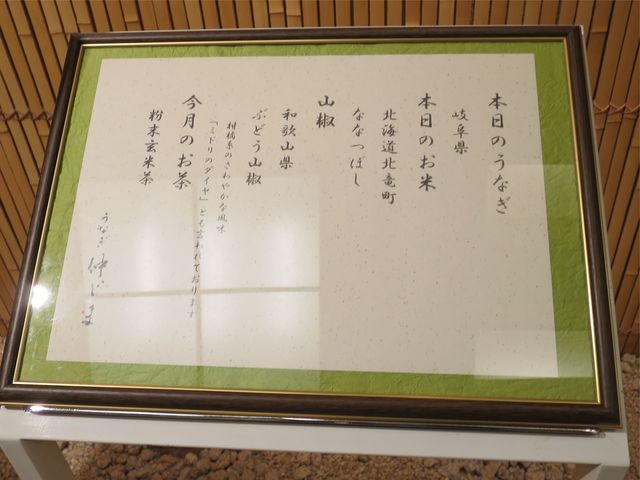 本日のうなぎ
岐阜県
本日のお米
北海道北竜町
ななつぼし
山椒
和歌山県
ぶどう山椒
柑橘系のさわやかな風味
「ミドリのダイヤ」とも言われております
今月のお茶
粉末玄米茶
うなぎ